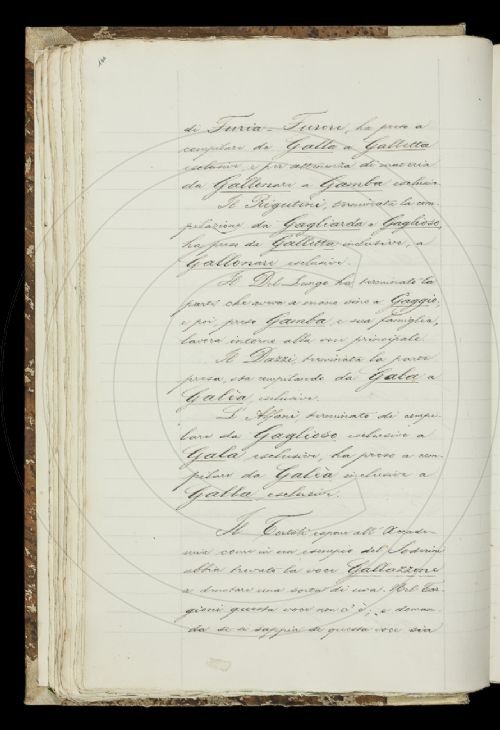 di Furia-Furore, ha preso a
compilare da Galla a Galletta
esclusive, e per attenenza di materia
da Gallonare a Gamba esclusive.
Il Rigutini, terminata la com-
pilazione da Gagliarda a Gaglioso,
ha preso da Galletta inclusive, a
Gallonare esclusive.
Il Del Lungo ha terminato la
parte che aveva a mano sino a Gaggio,
e poi, preso Gamba e sua famiglia,
lavora intorno alla voce principale.
Il Dazzi, terminata la parte
presa, sta compilando da Gala a
Galìa, esclusive.
L'Alfani, terminato di compi-
lare da Gaglioso esclusive a
Gala esclusive, ha preso a com-
pilare da Galìa inclusive a
Galla esclusive.
Il Tortoli espone all'Accade-
mia come in un esempio del Soderini
abbia trovato la voce Gallazzone
a denotare una sorta di uva. Nel Tar-
gioni questa voce non c'è; e doman-
da se si sappia di questa voce sia